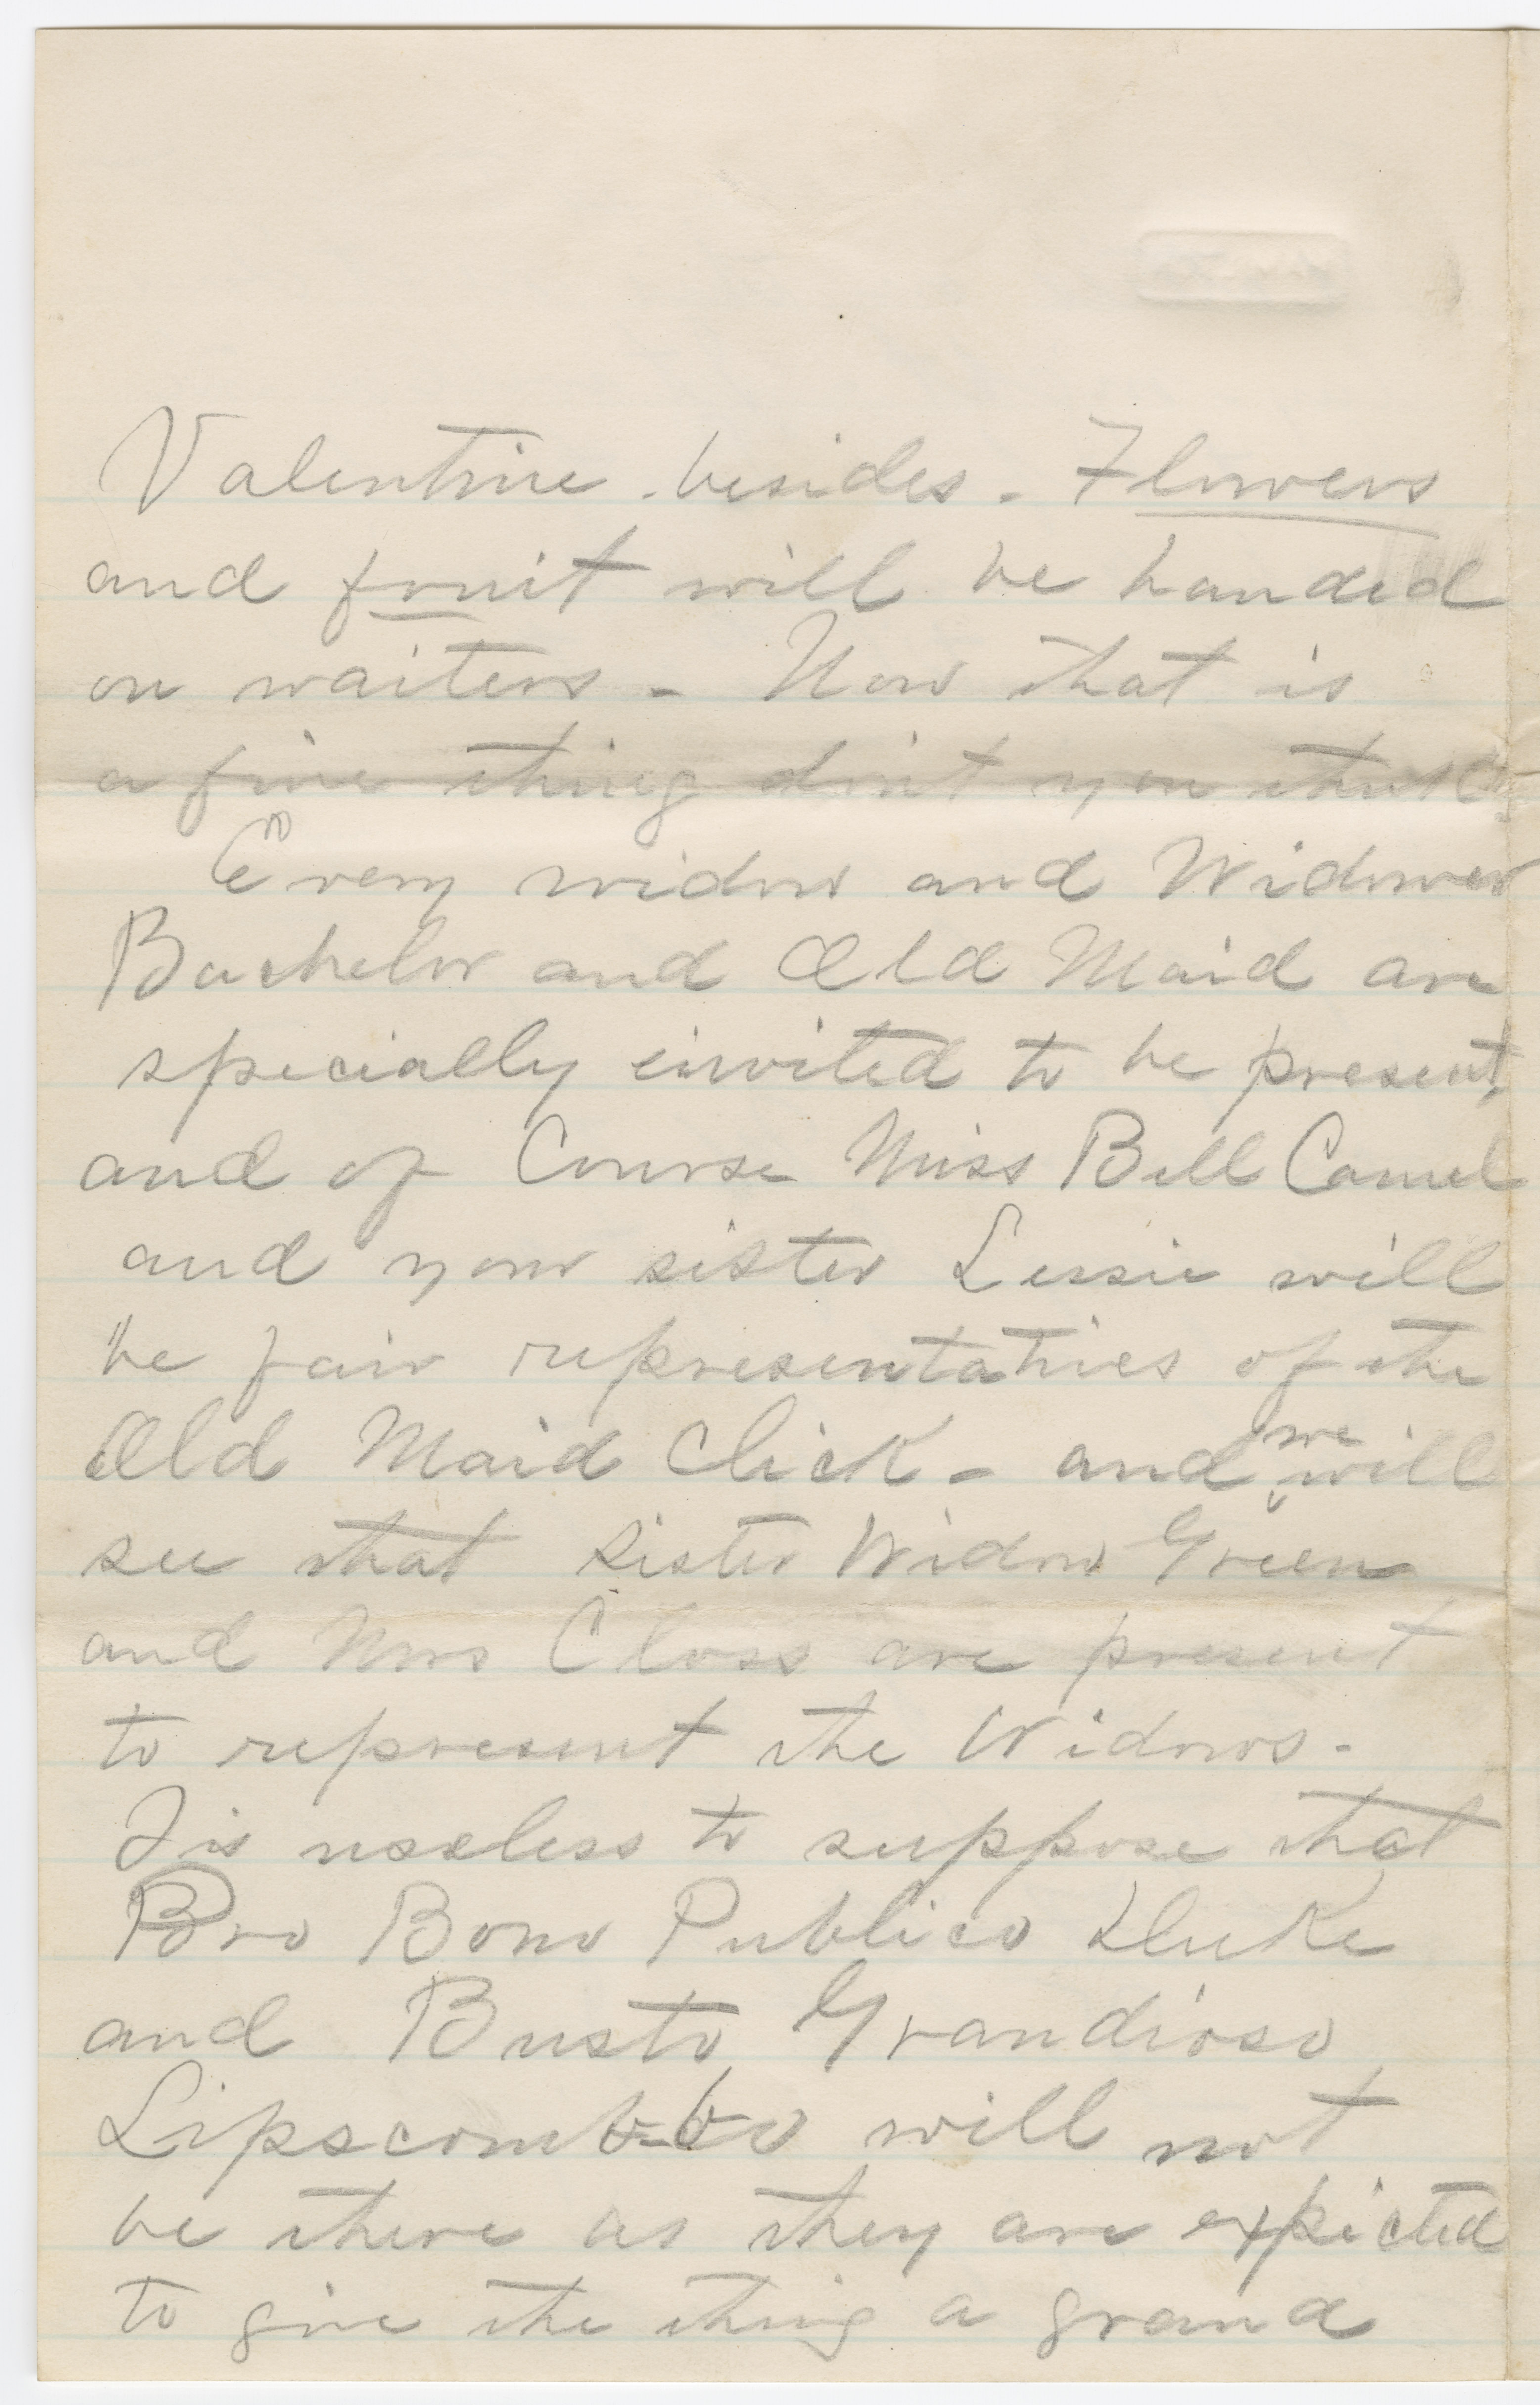 Valentine besides. Flowers
and fruit will be handed
on waiters - Now that is
a fine thing don't you think?
Every widow and Widower
Bachelor and Old Maid are
specially invited to be present,
and of Course Miss Bell Camel
and your sister Lessie will
be fair representaties of the
Old Maid Click - and we will
see that sister Widow Green
and Mrs Closs are present
to represent the Widows.
Tis useless to suppose that
Bro Bono Publico Duke
and Busto Grandioso
Lipscombbo will not
be there as they are expected
to give the thing a grand